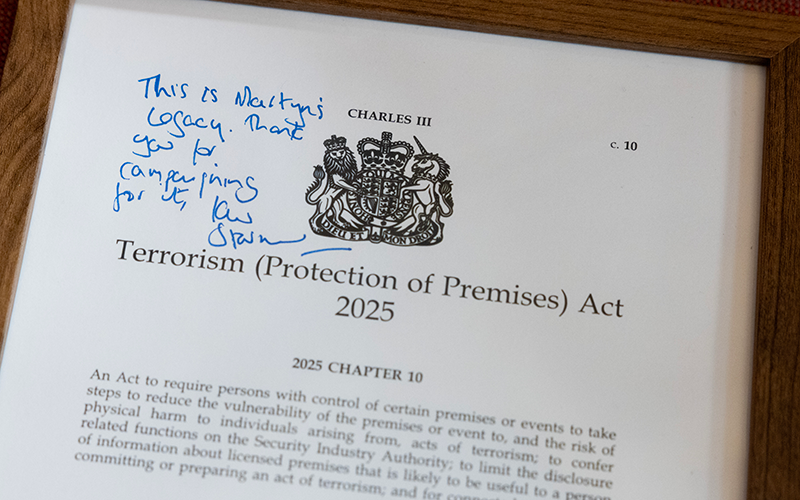 This is Martyn's
Legacy. Thank
you for
campaigning
for it,
Keir
Starmer
CHARLES III
c. 10
DIEU ET MON DROIT
Terrorism (Protection of Premises) Act
2025
2025 CHAPTER 10
An Act to require persons with control of certain premises or events to take
steps to reduce the vulnerability of the premises or event to, and the risk of
physical harm to individuals arising from, acts of terrorism; to confer
related functions on the Security Industry Authority; to limit the disclosure
of information about licensed premises that is likely to be useful to a person
committing or preparing an act of terrorism; and for